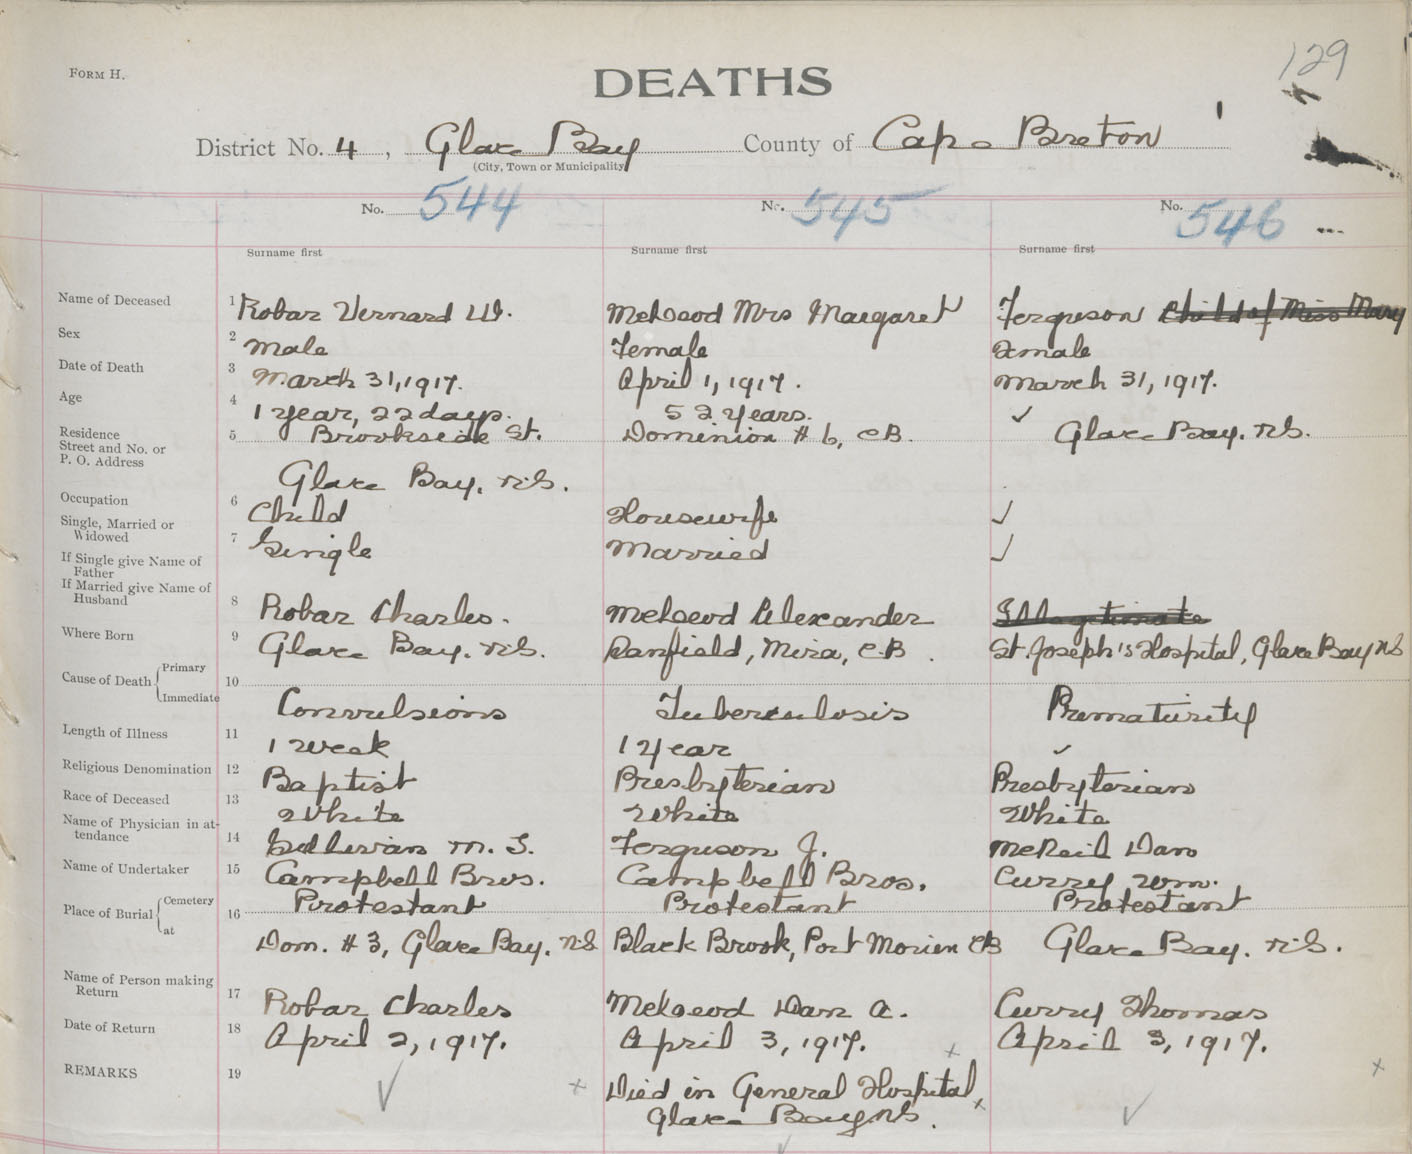 129
FORM H.
DEATHS
District No. 4, Glace Bay County of Cape Breton
(City, Town or Municipality)
No. 544 No. 545 No. 546
Surname first Surname first Surname first
Name of Deceased 1 Robar Vernard W. McLeod Mrs Margaret Ferguson Child of Miss Mary
Sex 2 Male Female Female
Date of Death 3 March 31, 1917. April 1, 1917. March 31, 1917.
Age 4 1 year, 22 days. 52 years. ✓
Residence 5 Brookside St. Dominion # 6, C.B. Glace Bay, N.S.
Street and No. or
P. O. Address
Glace Bay, N.S.
Occupation 6 Child Housewife ✓
Single, Married or
Widowed 7 Single Married ✓
If Single give Name of
Father
If Married give Name of
Husband 8 Robar Charles. McLeod Alexander Illegitimate
Where Born 9 Glace Bay, N.S. Mira, C.B. St. Joseph's Hospital, Glace Bay N.S
Cause of Death Primary
Immediate 10 Convulsions Tuberculosis Prematurity
Length of Illness 11 1 week 1 year ✓
Religious Denomination 12 Baptist Presbyterian Presbyterian
Race of Deceased 13 White White White
Name of Physician in at-
tendance 14 Sullivan M. S. Ferguson J. McNeil Dan
Name of Undertaker 15 Campbell Bros. Campbell Bros. Curry Wm.
Place of Burial Cemetery 16 Protestant Protestant Protestant
at Dom. # 3, Glace Bay, N.S Black Brook, Port Morien CB Glace Bay, N.S.
Name of Person making
Return 17 Robar Charles McLeod Dan A. Curry Thomas
Date of Return 18 April 2, 1917. April 3, 1917. April 3, 1917.
REMARKS 19 Died in General Hospital,
Glace Bay N.S.